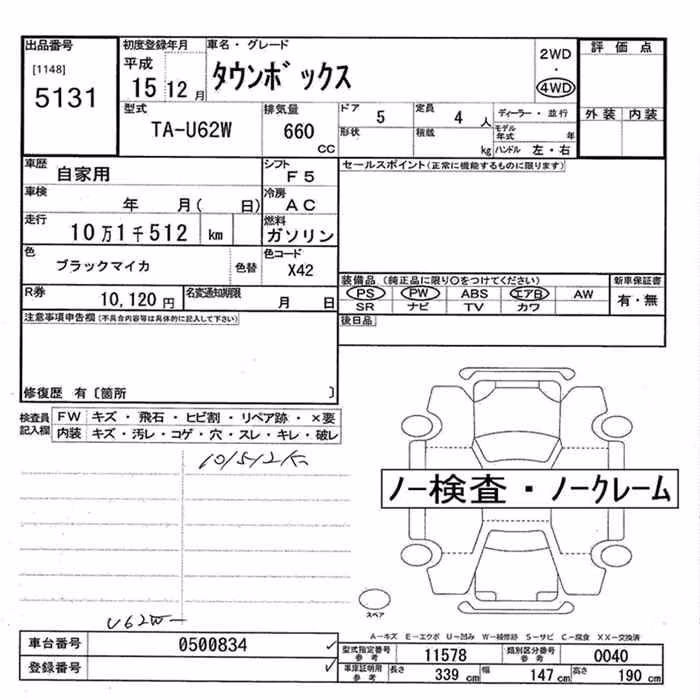 出品番号
[1148]
5131
初度登録年月
平成
15 12 月
車名・グレード
タウンボックス
2WD
・
4WD
評価点
外装 内装
型式
TA-U62W
排気量
660
CC
ドア 5
定員 4 人
ディーラー・並行
形状
積載 kg
モデル年式 年
ハンドル 左・右
車歴 自家用
シフト F5
セールスポイント(正常に機能するものに限ります)
車検 年 月( 日)
冷房 AC
走行 10万1千512 km
燃料 ガソリン
色 ブラックマイカ
色替
色コード X42
装備品 (純正品に限り○をつけてください)
新車保証書
PS PW ABS エアB AW
有・無
SR ナビ TV カワ
R券 10,120 円
名変通知期限 月 日
後日品
注意事項申告欄(不具合内容等は具体的に記入して下さい)
修復歴 有〔箇所 〕
検査員記入欄
FW キズ・飛石・ヒビ割・リペア跡・×要
内装 キズ・汚レ・コゲ・穴・スレ・キレ・破レ
101512K
ノー検査・ノークレーム
スペア
U62W-
A-キズ E-エクボ U-凹み W-補修跡 S-サビ C-腐食 XX-交換済
車台番号 0500834
登録番号
型式指定番号 参考 11578
類別区分番号 参考 0040
車庫証明用 参考 長さ 339 cm 幅 147 cm 高さ 190 cm